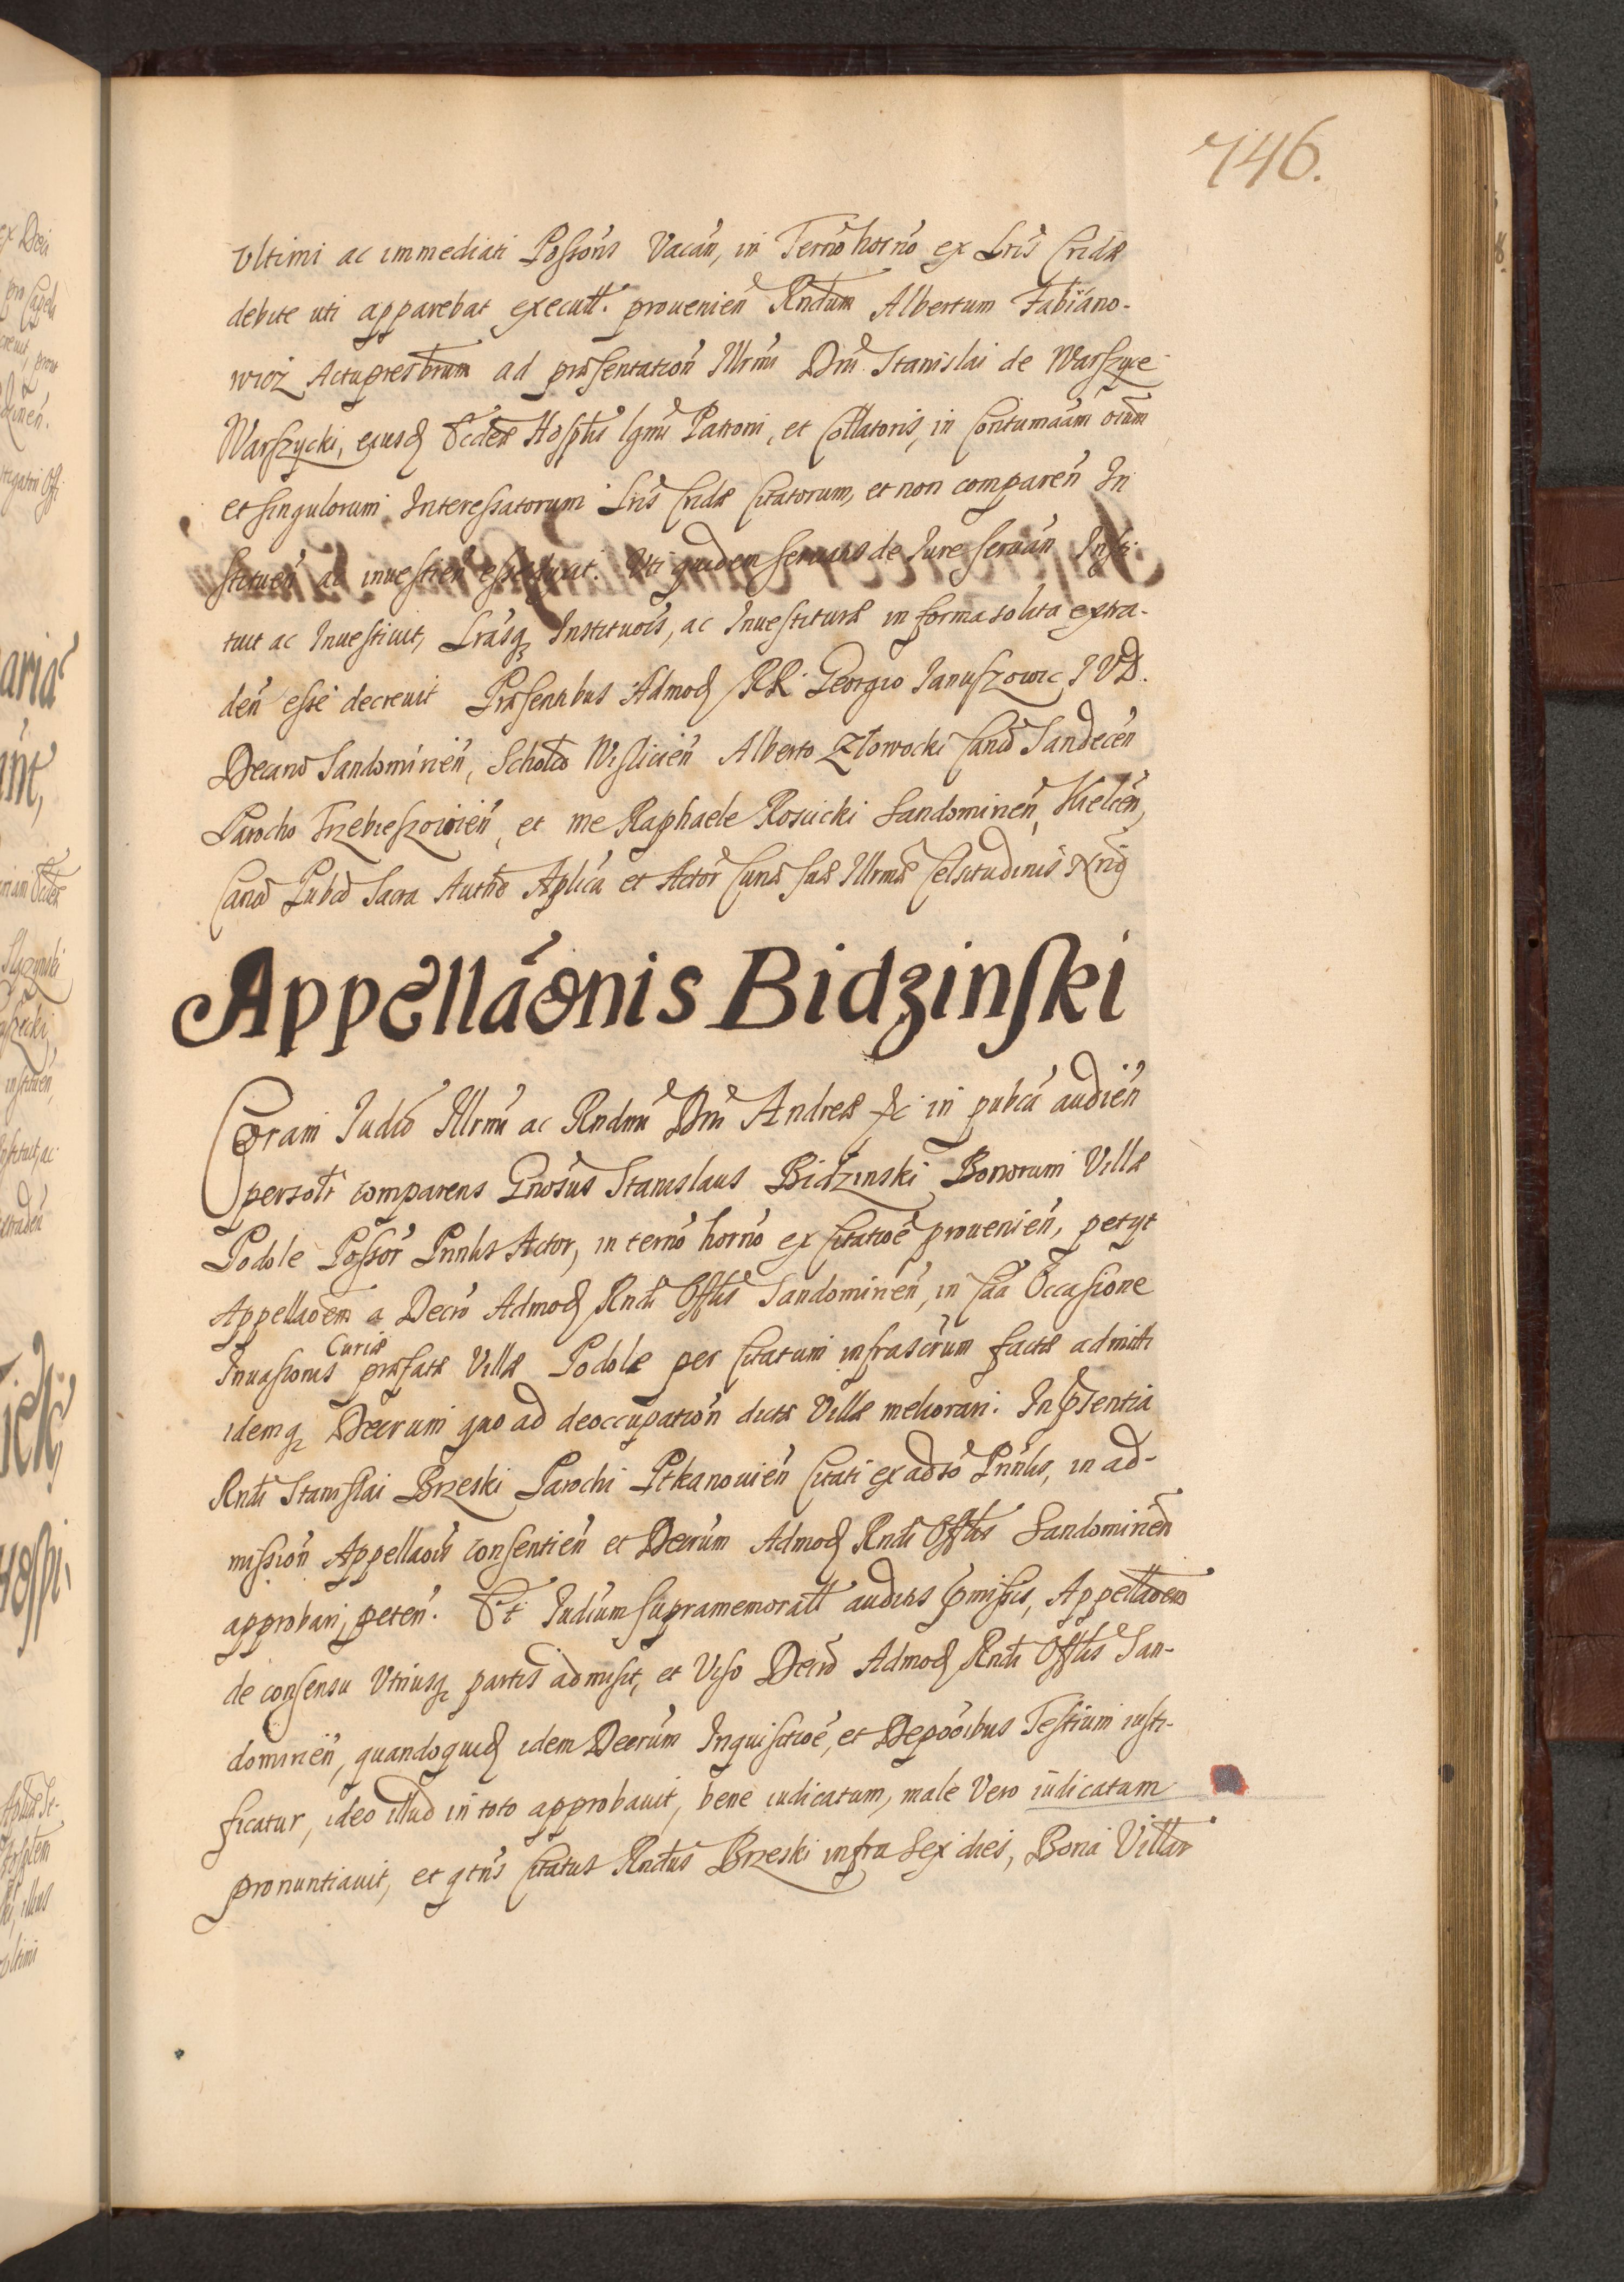 746.
Vltimi ac immediati Possoris Vacań, in Termo horno ex Lris Cridæ
debite uti apparebat executt. prouenień Rndum Albertum Fabiano-
wicz Actuprestrum ad præsentatioń Illrmi Dni Stanislai de Warszyce
Warszycki, eiusd Eccłæ Hosptis lgmi Patroni, et Collatoris, in Contumaām oium
et singulorum Interessatorum Lris Cridæ Citatorum, et non compareń In
stitueń ac inuestień esse Uti quidem seruatis de Iure seruań Insti-
tuit ac Inuestiuit, Lrasq Institutois, ac Inuestituræ in forma solita extra-
deń esse decreuit Præsentibus Admod RR. Georgio Januszowic I V D.
Decano Sandominień, Scholco Wislicień Alberto Złowocki Cano Sandeceń
Parocho Trzebieszowień, et me Raphaele Rosiicki Sandominień, Kielceń,
Cano Pubco Sacra Autho Aplica et Actor Curiæ suæ Illrmæ Celsitudinis Nrio
Appellaōnis Bidzinski
Coram Iudio Illrmi ac Rndmi Dni Andreæ &c in pubca audień
personlr comparens Gnosus Stanislaus Bidzinski Bonorum Villæ
Podole Possor Pnnlis Actor, in termo horno ex Citatioe prouenień, petyt
Appellaoem a Decro Admod Rndi Offlis Sandominień, in Caa Occasione
Inuasionis Curiæ præfatæ Villæ Podole per Citatum infrascrum factæ admitti
idemq Decrum quo ad deoccupatioń dictæ Villæ meliorari. In psentia
Rndi Stanislai Brzeski Parochi Ptkanouień Citati ex adso Pnnlis, in ad-
missioń Appellaois consentień et Decrum Admod Rndi Offlis Sandominień
approbari peteń. Et Iudium supramemoratt auditis pmissis, Appellaoem
de consensu Vtriusq partis admisit, et Viso Decro Admod Rndi Offlis San-
dominień, quandoquid idem Decrum Inquisitioe, et Depoōibus Testium iusti-
ficatur, ideo illud in toto approbauit, bene iudicatum, male Vero iudicatum
pronuntiauit, et qtns Citatus Rndus Brzeski infra Sex dies, Bona Villæ